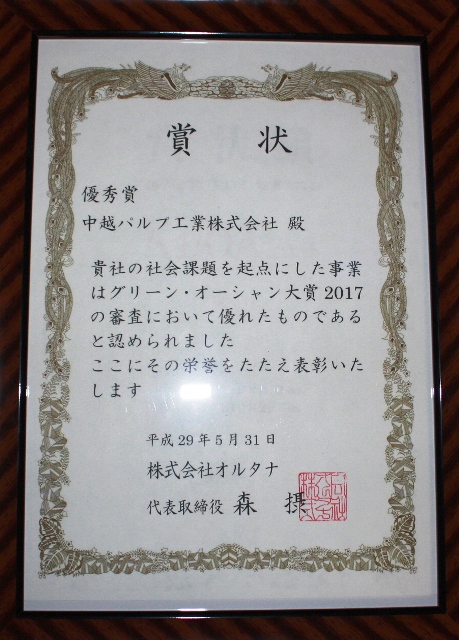 賞 状
優秀賞
中越パルプ工業株式会社 殿
貴社の社会課題を起点にした事業
はグリーン・オーシャン大賞2017
の審査において優れたものである
と認められました
ここにその栄誉をたたえ表彰いた
します
平成29年5月31日
株式会社オルタナ
代表取締役 森 摂